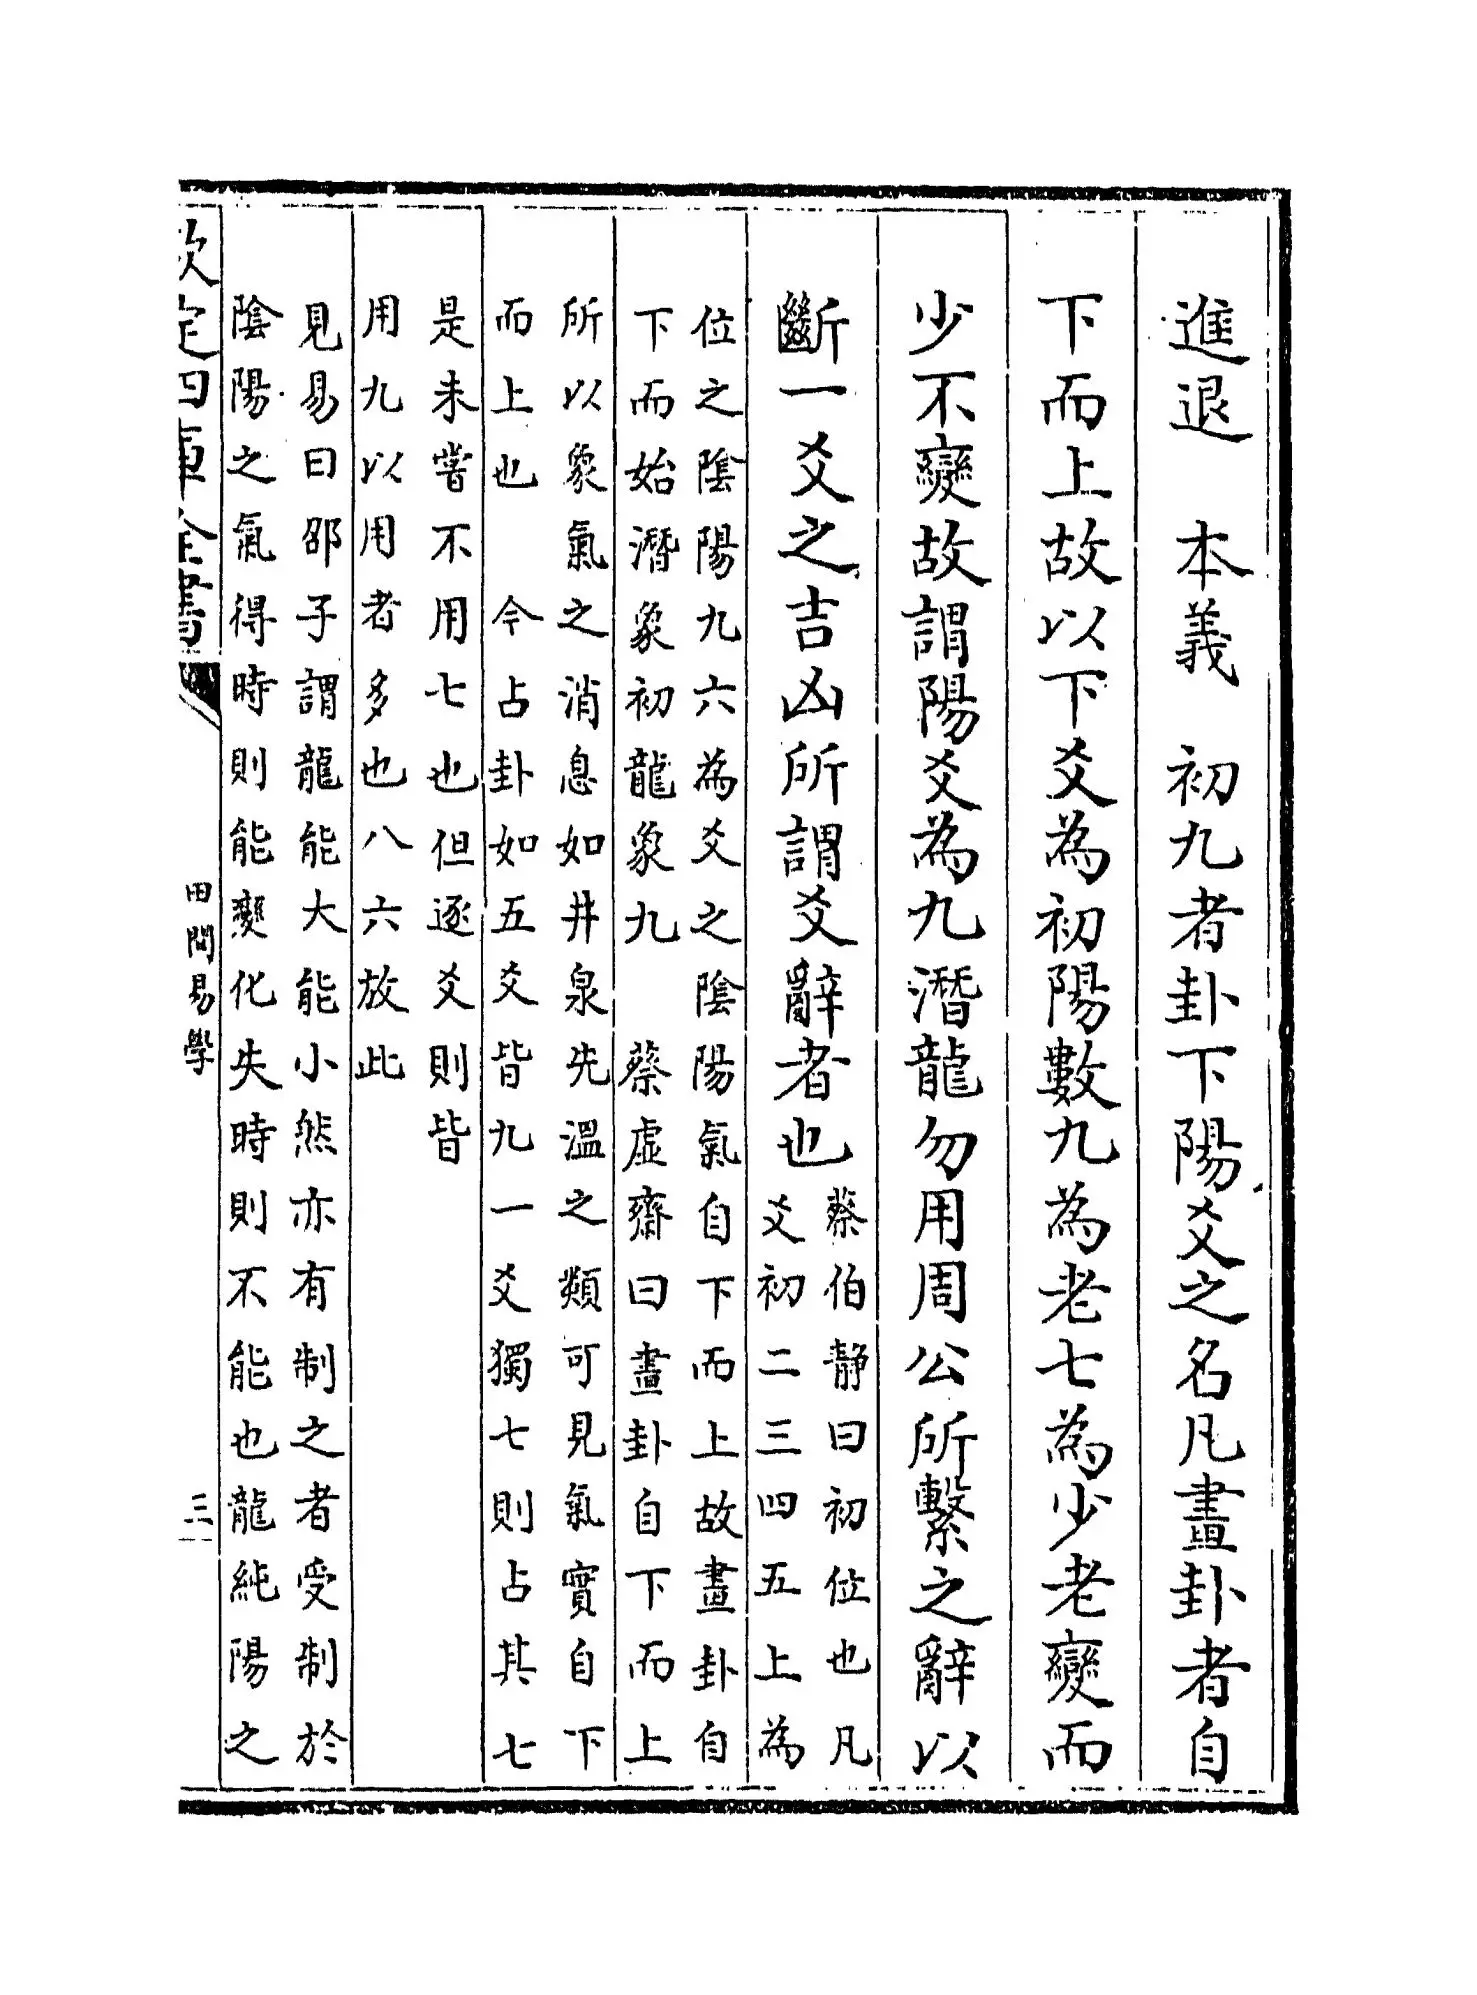 進退　本義　初九者卦下陽爻之名凡畫卦者自
下而上故以下爻為初陽數九為老七為少老變而
少不變故謂陽爻為九潛龍勿用周公所繫之辭以
斷一爻之吉凶所謂爻辭者也
蔡伯静曰初位也凡
爻初二三四五上為
位之陰陽九六為爻之陰陽氣自下而上故畫卦自
下而始潛象初龍象九　蔡虛齋曰畫卦自下而上
所以象氣之消息如井泉先溫之類可見氣實自下
而上也　今占卦如五爻皆九一爻獨七則占其七
是未嘗不用七也但逐爻則皆
用九以用者多也八六放此
見易曰邵子謂龍能大能小然亦有制之者受制於
陰陽之氣得時則能變化失時則不能也龍純陽之
欽定四庫全書
田間易學
三